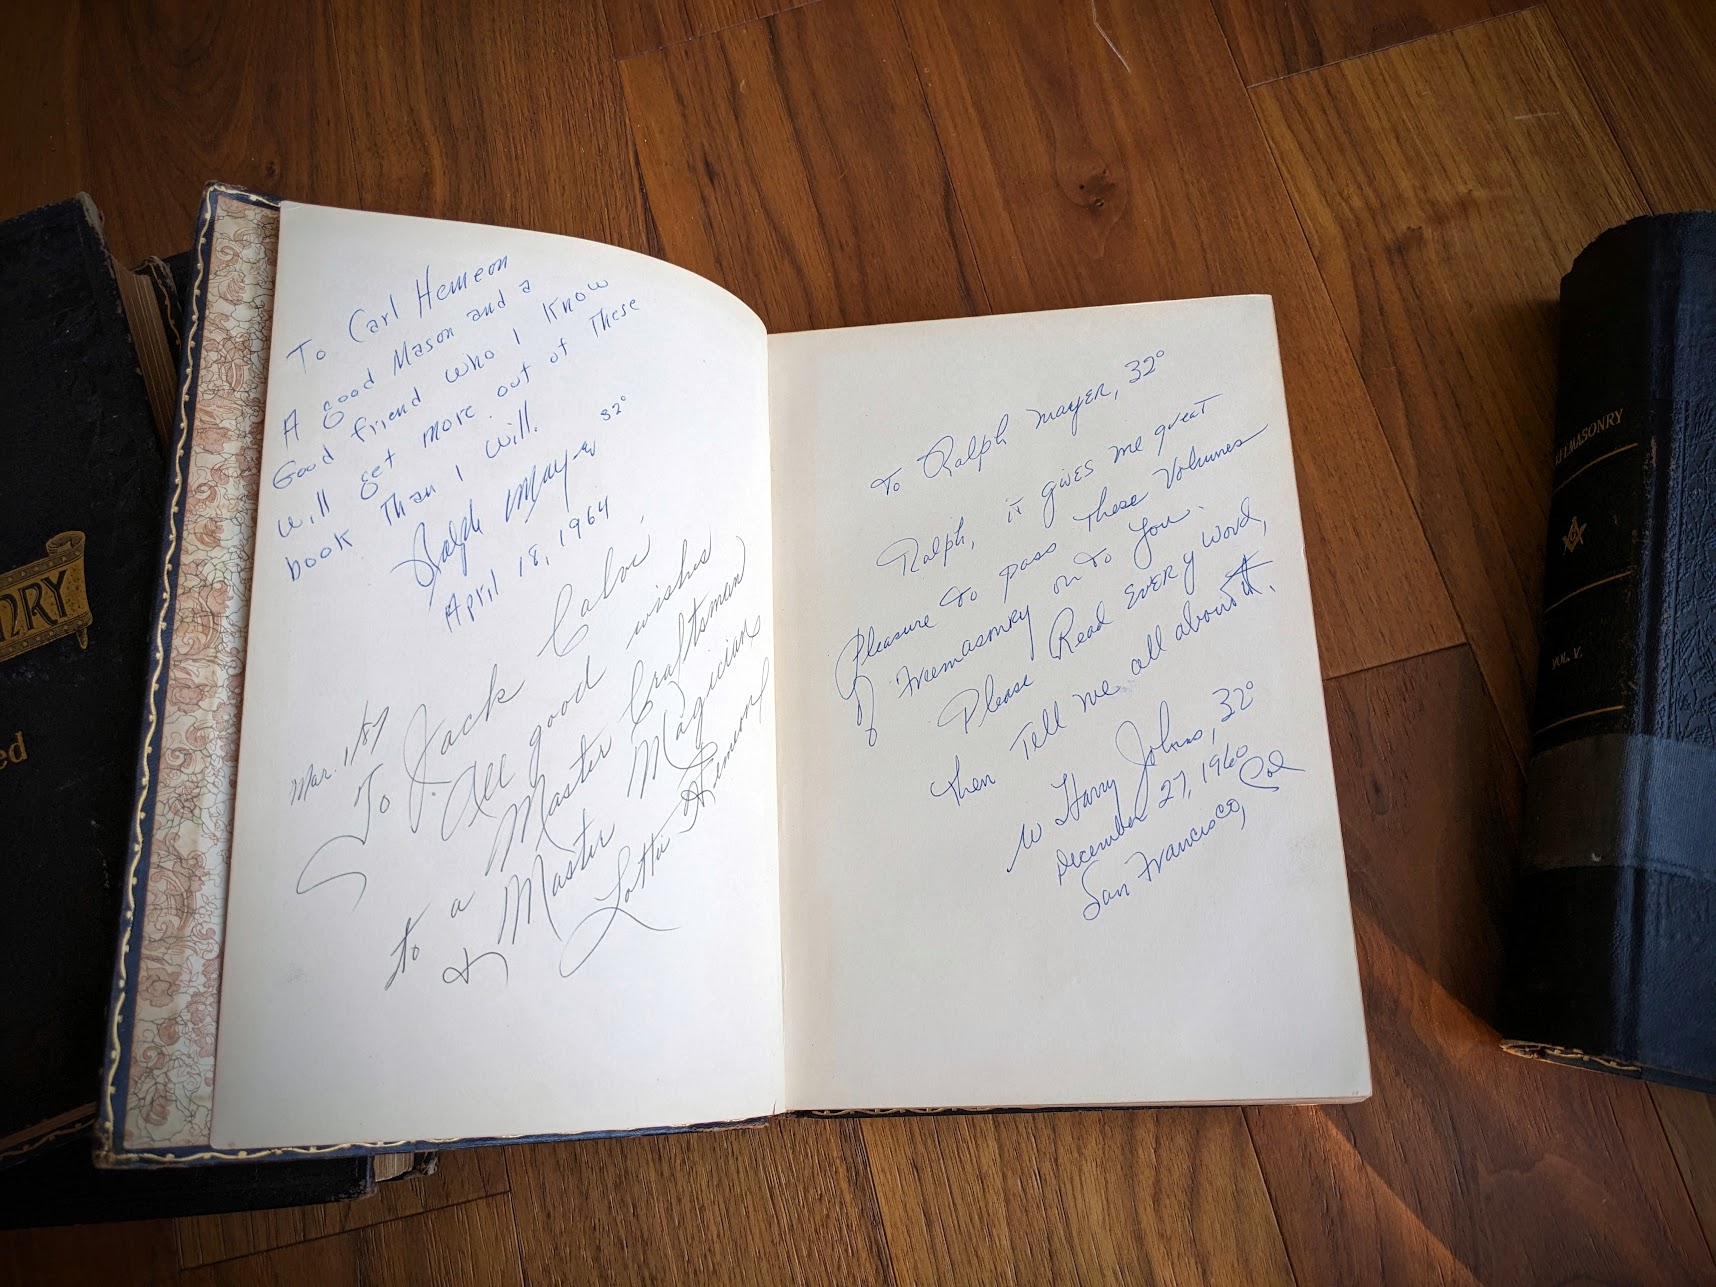 NRY
ed
To Carl Hemeon
A good Mason and a
Good friend who I know
will get more out of these
book Than I will.
Ralph Mayer 32°
April 18, 1964
Mar. 1/87
To Jack Calvi,
All good wishes
to a Master Craftsman
& Master Magician,
Lotta Hemeon
To Ralph Mayer, 32°
Ralph, it gives me great
Pleasure to pass These Volumes
of Freemasonry on to You.
Please Read Every Word,
Then Tell me all about it.
W Harry Johns, 32°
December 27, 1960
San Francisco, Cal
EEMASONRY
G
VOL. V.